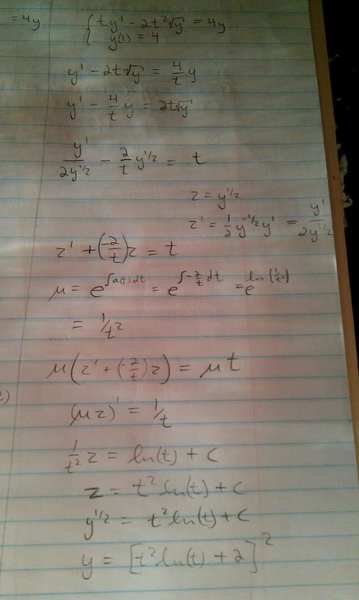 = 4y
{ ty' - 2t²√y = 4y
y(1) = 4
y' - 2t√y = 4/t y
y' - 4/t y = 2t√y
y'/2y^1/2 - 2/t y^1/2 = t
z = y^1/2
z' = 1/2 y^-1/2 y' = y'/2y^1/2
z' + (-2/t)z = t
μ = e^∫a(t)dt = e^∫-2/t dt = e^ln(1/t²)
= 1/t²
μ(z' + (-2/t)z) = μt
(μz)' = 1/t
1/t² z = ln(t) + c
z = t² ln(t) + c
y^1/2 = t² ln(t) + c
y = [t² ln(t) + 2]²